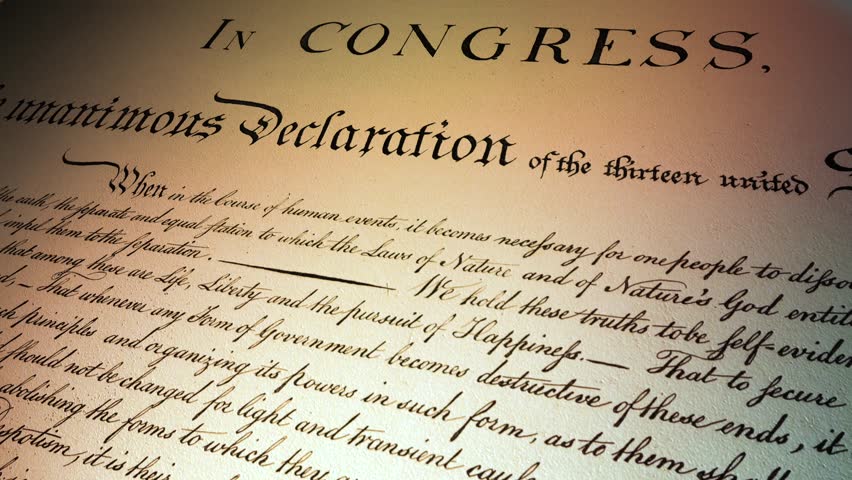 In CONGRESS,
unanimous Declaration of the thirteen united
When in the Course of human events, it becomes necessary for one people to disso
the earth, the separate and equal station to which the Laws of Nature and of Nature's God entit
impel them to the separation. ——— We hold these truths to be self-eviden
that among these are Life, Liberty and the pursuit of Happiness. — That to secure
— That whenever any Form of Government becomes destructive of these ends, it
principles and organizing its powers in such form, as to them shall
should not be changed for light and transient cau
abolishing the forms to which they a
Despotism, it is their